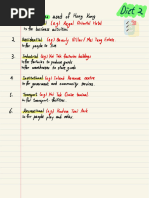 use of Hong Kong
Dict 2
(e.g.) Regal Oriental Hotel
→ for business activities
2. Residential (e.g.) Beverly Villas / Mei Tung Estate
→ for people to live
3. Industrial (e.g.) Hoi Tak factories buildings
→ for factories to produce goods
→ for warehouses to store goods
4. Institutional (e.g.) Inland Revenue centre
→ for government and community services
5. Transport (e.g.) Kai Tak
→ for transport facilities
6. Recreational (e.g.) Kowloon Tsai Park
→ for people play and relax